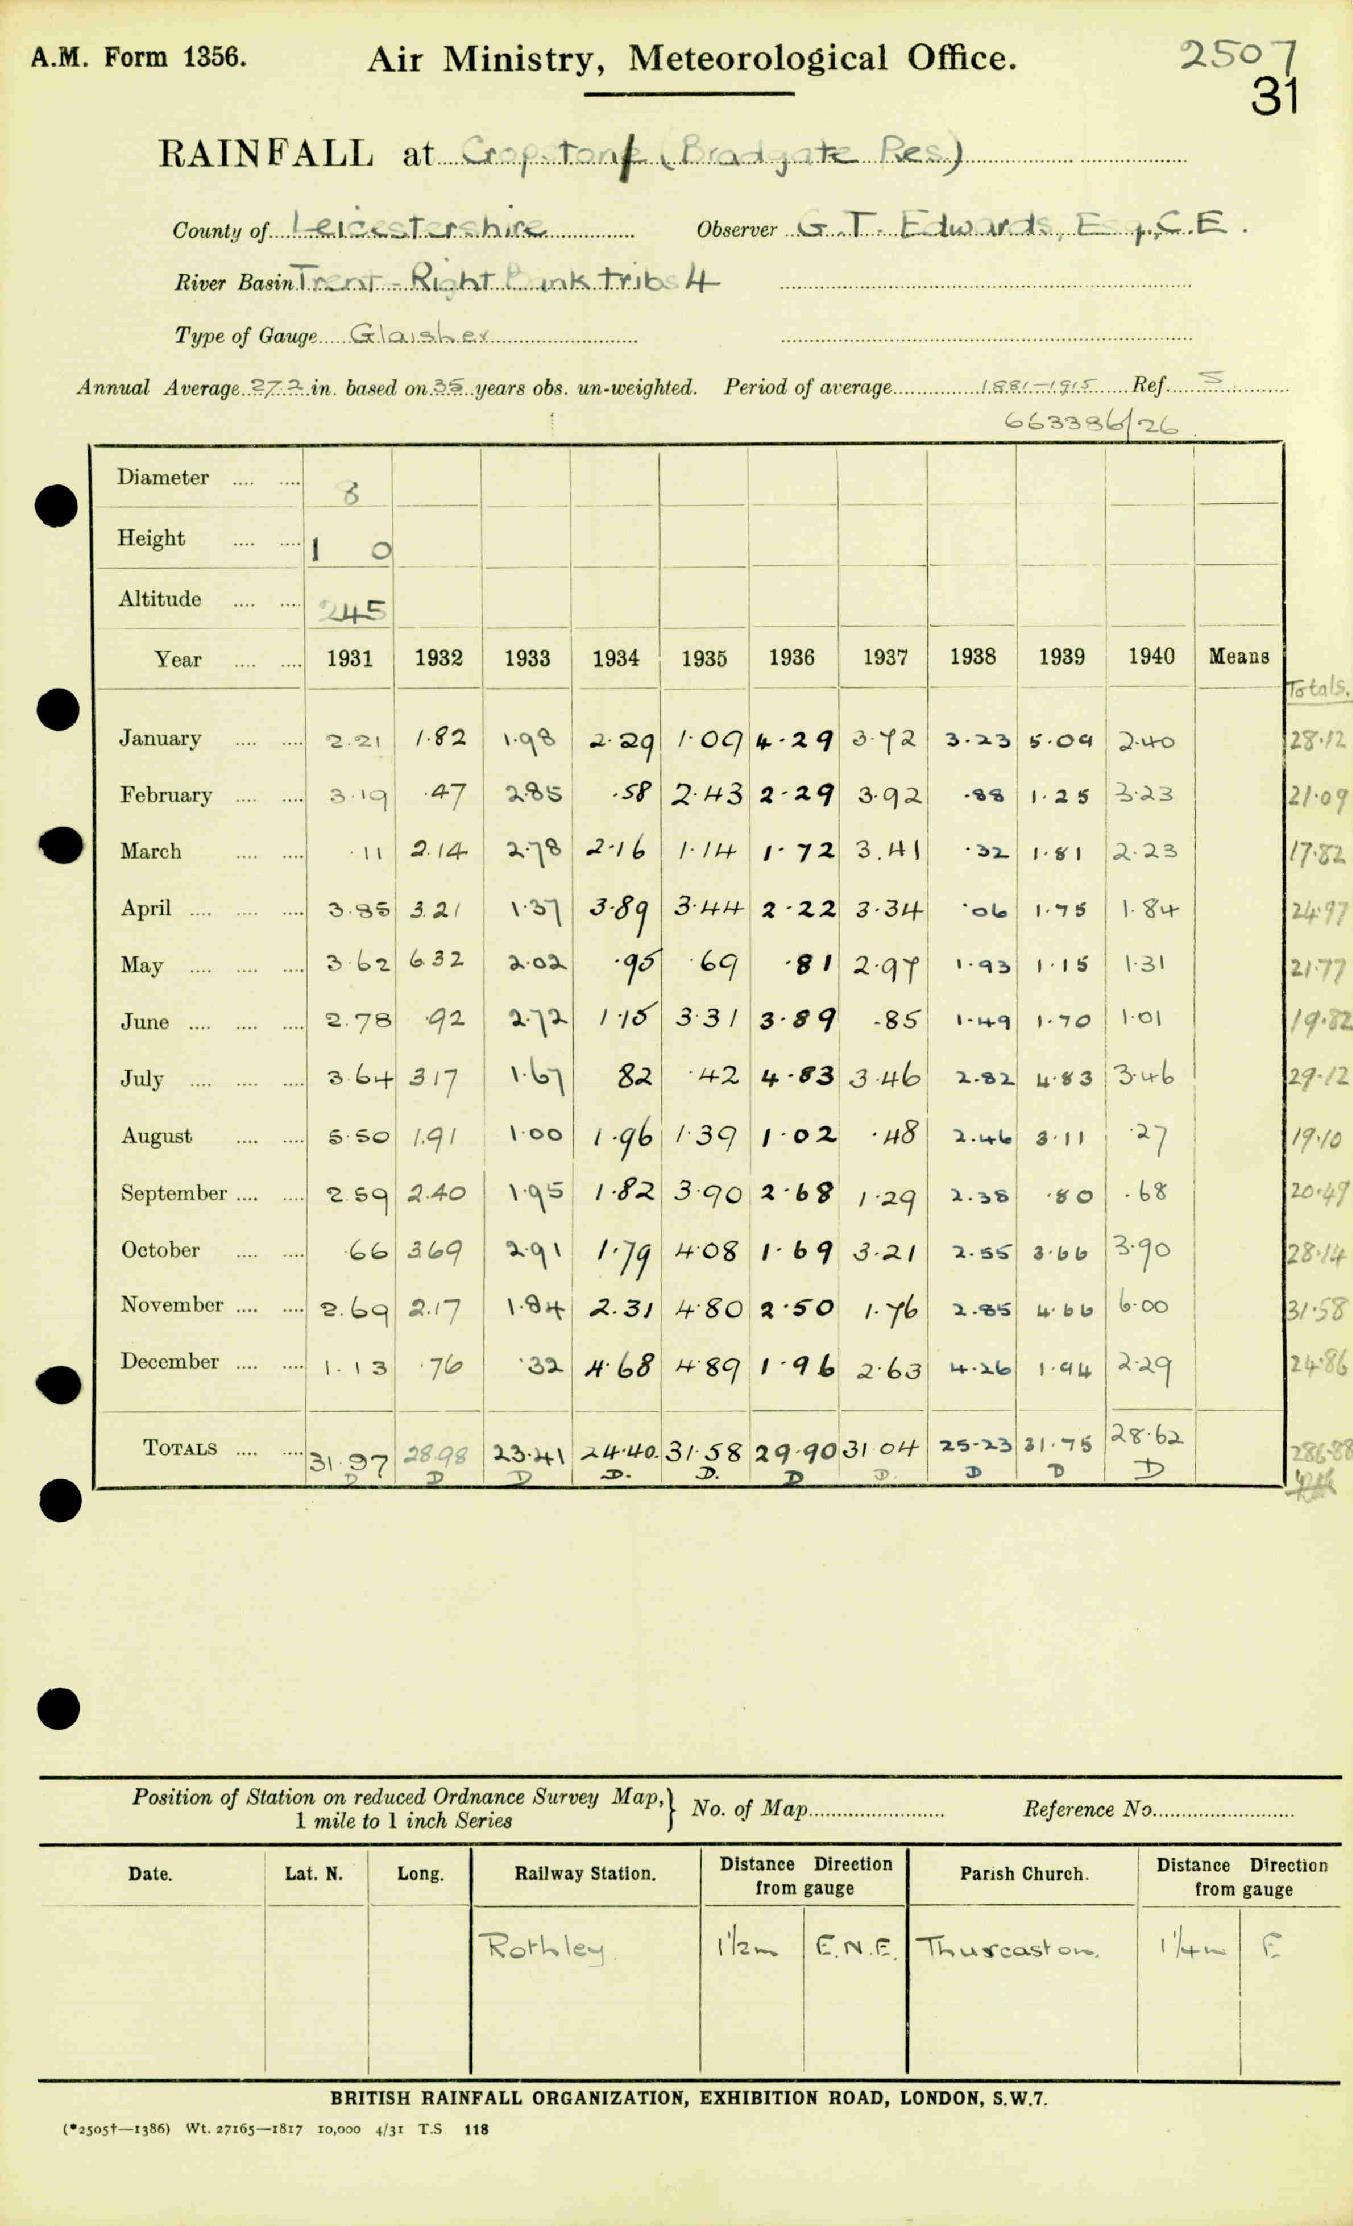 A.M. Form 1356.
Air Ministry, Meteorological Office.
2507
31
RAINFALL at Cropston (Bradgate Res)
County of Leicestershire Observer G.T. Edwards, Esq., C.E.
River Basin Trent - Right Bank tribs 4
Type of Gauge Glaisher
Annual Average 27.2 in. based on 35 years obs. un-weighted. Period of average 1881-1915 Ref. S
663386/26
Diameter 8
Height 1 0
Altitude 245
Year 1931 1932 1933 1934 1935 1936 1937 1938 1939 1940 Means
Totals.
January 2.21 1.82 1.98 2.29 1.09 4.29 3.72 3.23 5.09 2.40 28.12
February 3.19 .47 2.85 .58 2.43 2.29 3.92 .88 1.25 3.23 21.09
March .11 2.14 2.78 2.16 1.14 1.72 3.41 .32 1.81 2.23 17.82
April 3.85 3.21 1.37 3.89 3.44 2.22 3.34 .06 1.75 1.84 24.97
May 3.62 6.32 2.02 .95 .69 .81 2.97 1.93 1.15 1.31 21.77
June 2.78 .92 2.72 1.15 3.31 3.89 .85 1.49 1.70 1.01 19.82
July 3.64 3.17 1.67 82 .42 4.83 3.46 2.82 4.83 3.46 29.12
August 5.50 1.91 1.00 1.96 1.39 1.02 .48 2.46 3.11 .27 19.10
September 2.59 2.40 1.95 1.82 3.90 2.68 1.29 2.38 .80 .68 20.49
October .66 3.69 2.91 1.79 4.08 1.69 3.21 2.55 3.66 3.90 28.14
November 2.69 2.17 1.84 2.31 4.80 2.50 1.76 2.85 4.66 6.00 31.58
December 1.13 .76 .32 4.68 4.89 1.96 2.63 4.26 1.94 2.29 24.86
TOTALS 31.97 28.98 23.41 24.40. 31.58 29.90 31.04 25.23 31.75 28.62 286.88
D D D D. D. D D. D D D
Position of Station on reduced Ordnance Survey Map, } No. of Map Reference No.
1 mile to 1 inch Series
Date. Lat. N. Long. Railway Station. Distance Direction from gauge Parish Church. Distance Direction from gauge
Rothley 1½m E.N.E. Thurcaston. 1¼m E
BRITISH RAINFALL ORGANIZATION, EXHIBITION ROAD, LONDON, S.W.7.
(*2505†—1386) Wt. 27165—1817 10,000 4/31 T.S 118